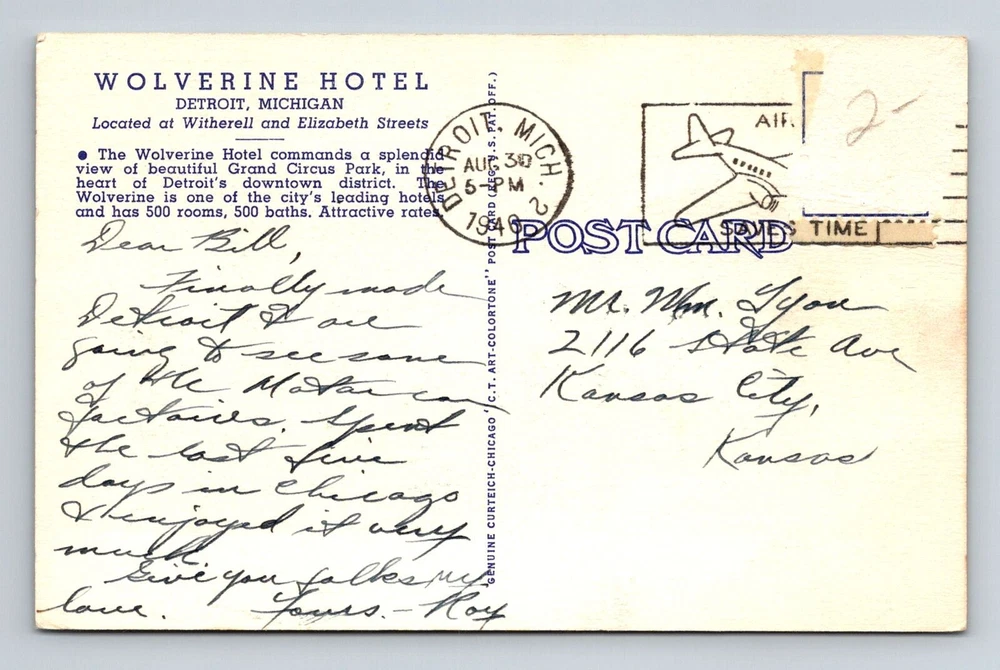 WOLVERINE HOTEL
DETROIT, MICHIGAN
Located at Witherell and Elizabeth Streets
● The Wolverine Hotel commands a splendid
view of beautiful Grand Circus Park, in the
heart of Detroit's downtown district. The
Wolverine is one of the city's leading hotels
and has 500 rooms, 500 baths. Attractive rates.
Dear Bill,
Finally made
Detroit & are
going to see some
of the Motor car
factories. Spent
the last five
days in Chicago
& enjoyed it very
much.
Give you folks my
love. Yours - Roy
GENUINE CURTEICH-CHICAGO "C.T. ART-COLORTONE" POST CARD (REG. U.S. PAT. OFF.)
DETROIT, MICH. 2
AUG 30
5-PM
1946
AIR
SAVES TIME
2-
POST CARD
Mr. Wm. Lyon
2116 State Ave
Kansas City,
Kansas